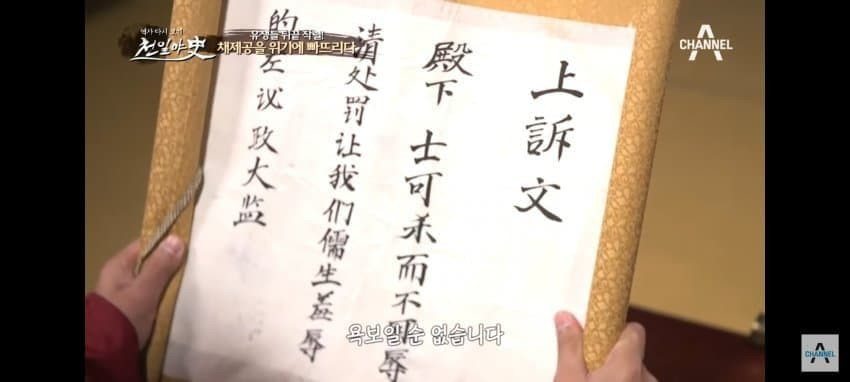 역사 다시 보기
천일야史
유생들 뒤끝 작렬!
채제공을 위기에 빠뜨리다
CHANNEL A
上訴文
殿下 士可杀而不可辱
清处罚让我们儒生羞辱
的左议政大监
욕보일 순 없습니다
CHANNEL A